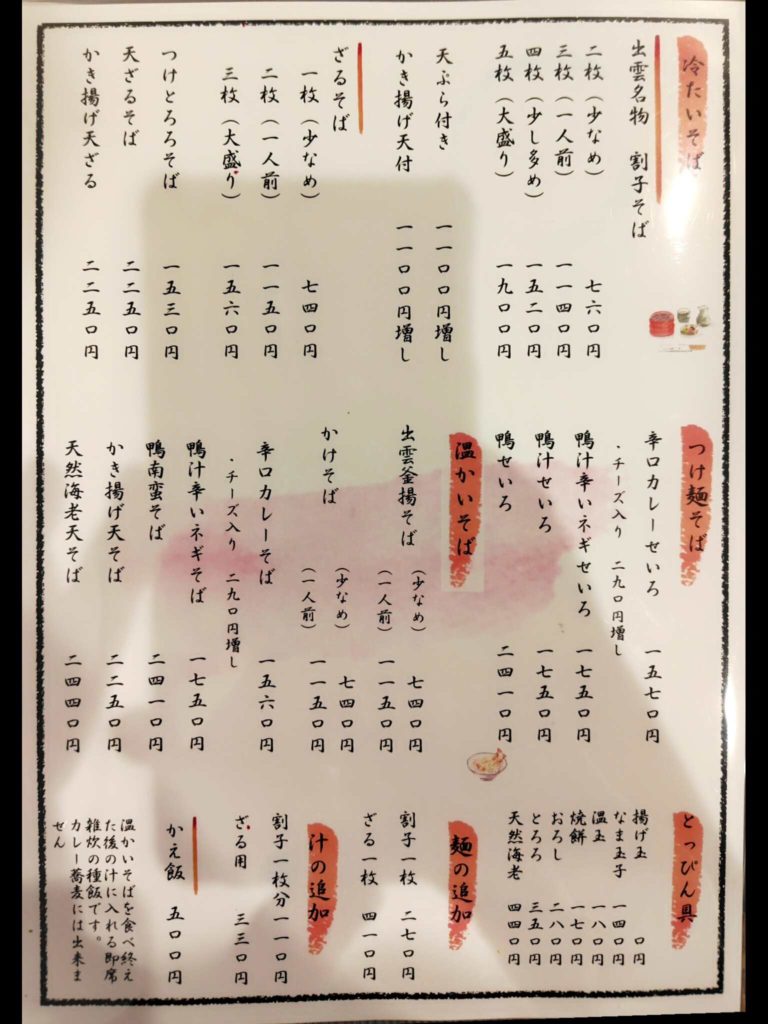 冷たいそば
出雲名物 割子そば
二枚（少なめ） 七六〇円
三枚（一人前） 一一四〇円
四枚（少し多め） 一五二〇円
五枚（大盛り） 一九〇〇円
天ぷら付き 一一〇〇円増し
かき揚げ天付 一一〇〇円増し
ざるそば
一枚（少なめ） 七四〇円
二枚（一人前） 一一五〇円
三枚（大盛り） 一五六〇円
つけとろろそば 一五三〇円
天ざるそば 二二五〇円
かき揚げ天ざる 二二五〇円
つけ麺そば
辛口カレーせいろ 一五七〇円
・チーズ入り 二九〇円増し
鴨汁辛いネギせいろ 一七五〇円
鴨汁せいろ 一七五〇円
鴨せいろ 二四一〇円
温かいそば
出雲釜揚そば （少なめ） 七四〇円
（一人前） 一一五〇円
かけそば （少なめ） 七四〇円
（一人前） 一一五〇円
辛口カレーそば 一五六〇円
・チーズ入り 二九〇円増し
鴨汁辛いネギそば 一七五〇円
鴨南蛮そば 二四一〇円
かき揚げ天そば 二二五〇円
天然海老天そば 二四四〇円
とっぴん具
揚げ玉 〇円
なま玉子 一四〇円
温玉 一八〇円
焼餅 一七〇円
おろし 二八〇円
とろろ 三五〇円
天然海老 四四〇円
麺の追加
割子一枚 二七〇円
ざる一枚 四一〇円
汁の追加
割子一枚分 一一〇円
ざる用 三三〇円
かえ飯 五〇〇円
温かいそばを食べ終え
た後の汁に入れる即席
雑炊の種飯です。
カレー蕎麦には出来ま
せん